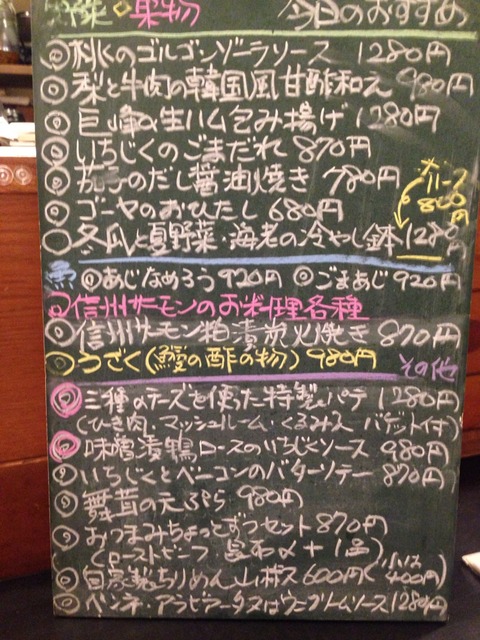 野菜・果物 今日のおすすめ
◎桃のゴルゴンゾーラソース 1280円
◎梨と牛肉の韓国風甘酢和え 980円
◎巨峰の生ハム包み揚げ 1280円
◎いちじくのごまだれ 870円
◎茄子のだし醤油焼き 780円
◎ゴーヤのおひたし 680円
◯冬瓜と夏野菜・海老の冷やし鉢 1280円
ハーフ
800円
魚 ◎あじなめろう 920円 ◎ごまあじ 920円
◎信州サーモンのお料理各種
◎信州サーモン粕漬炭火焼き 870円
◎うざく(鰻の酢の物) 980円
その他
◎三種のチーズを使った特製パテ 1280円
(ひき肉・マッシュルーム・くるみ入 バゲット付)
◎味噌漬鴨ロースのいちじくソース 980円
◎いちじくとベーコンのバターソテー 870円
◎舞茸の天ぷら 980円
◎おつまみちょっとずつセット 870円
(ローストビーフ 昆布〆+1品)
◎自家製ちりめん山椒 600円(小は400円)
◎ペンネ・アラビアータ又はクリームソース 1280円